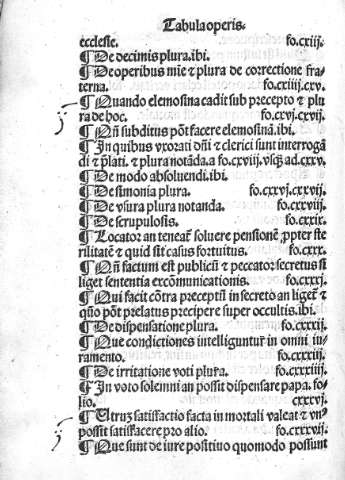 Tabula operis.
ecclesie. fo.cxiij.
¶ De decimis plura.ibi.
¶ De operibus mie & plura de correctione fra-
terna. fo.cxiiij.cxv.
¶ Quando elemosina cadit sub precepto & plu
ra de hoc. fo.cxvj.cxvij.
¶ Nñ subditus põt facere elemosinã.ibi.
¶ In quibus vxorati dñi & clerici sunt interrogã
di & p̃lati. & plura notãda.a fo.cxviij.vsq̃ ad.cxxv.
¶ De modo absoluendi.ibi.
¶ De simonia plura. fo.cxxvj.cxxvij.
¶ De vsura plura notanda. fo.cxxviij.
¶ De scrupulosis. fo.cxxix.
¶ Locator an teneat̃ soluere pensionẽ ꝓpter ste
rilitatẽ & quid sit casus fortuitus. fo.cxxx.
¶ Nñ factum est publicũ & peccator secretus si
liget sententia excõmunicationis. fo.cxxxj.
¶ Qui facit cõtra preceptũ in secreto an liget̃ &
quõ põt prelatus precipere super occultis.ibi.
¶ De dispensatione plura. fo.cxxxij.
¶ Que condictiones intelligunt̃ in omni iu-
ramento. fo.cxxxiij.
¶ De irritatione voti plura. fo.cxxxiiij.
¶ In voto solemni an possit dispensare papa. fo-
lio. cxxxvj.
¶ Utruz satisfactio facta in mortali valeat & vn̄⁹
possit satisfacere pro alio. fo.cxxxvij.
¶ Que sunt de iure positiuo quomodo possunt